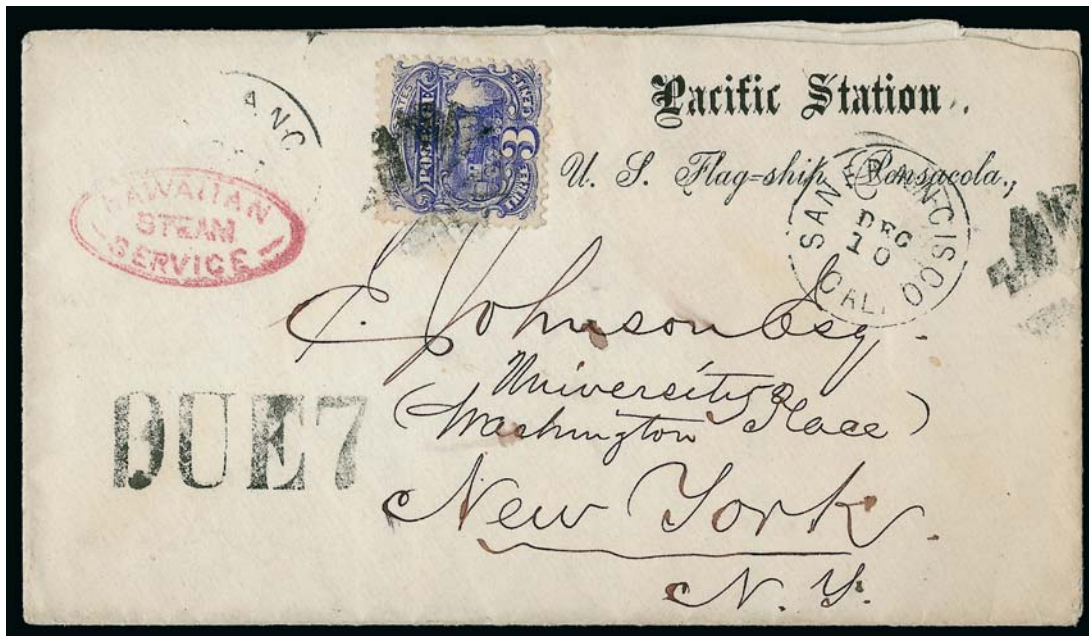 Pacific Station.
U. S. Flag=ship Pensacola,
POSTAGE
3
CENTS
SAN FRANCISCO
DEC
10
CAL.
HAWAIIAN
STEAM
SERVICE
E. Johnson Esq.
University Place
(Washington
)
DUE 7
New York.
N. Y.